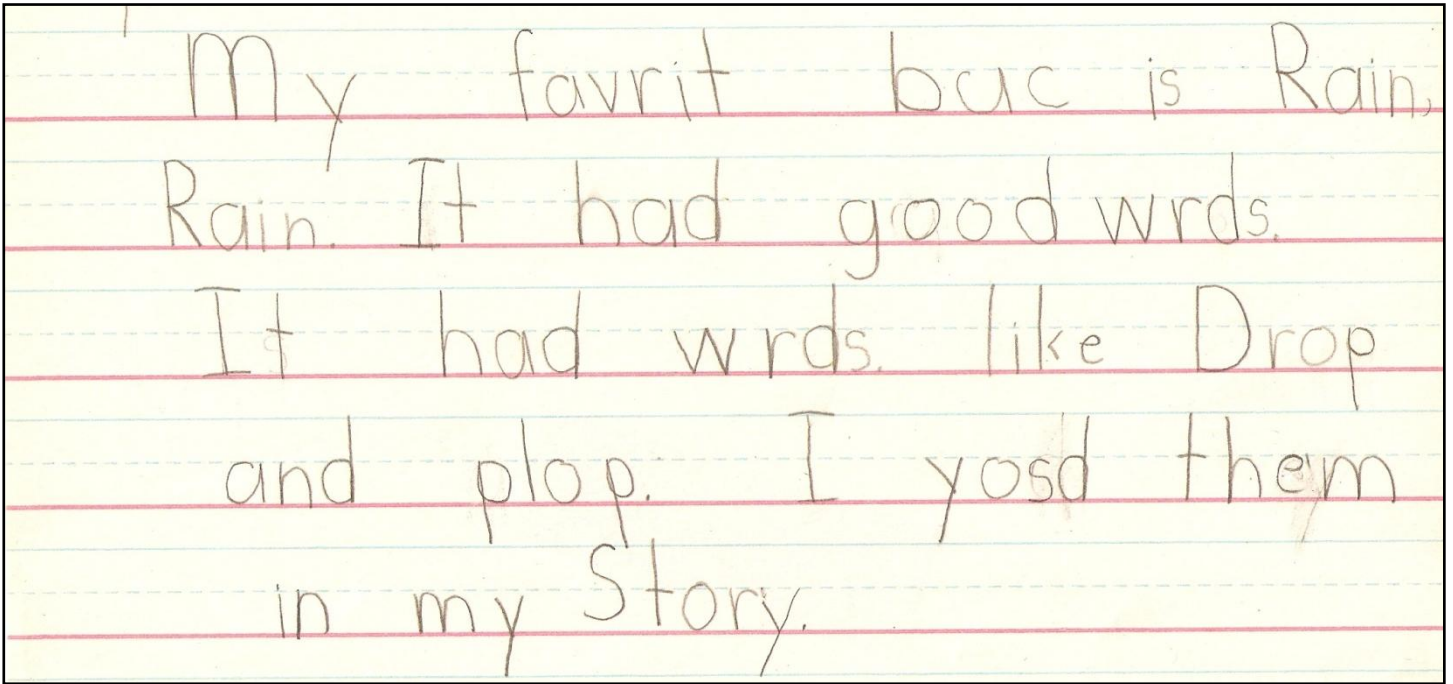 My favrit buc is Rain,
Rain. It had good wrds.
It had wrds. like Drop
and plop. I yosd them
in my Story.